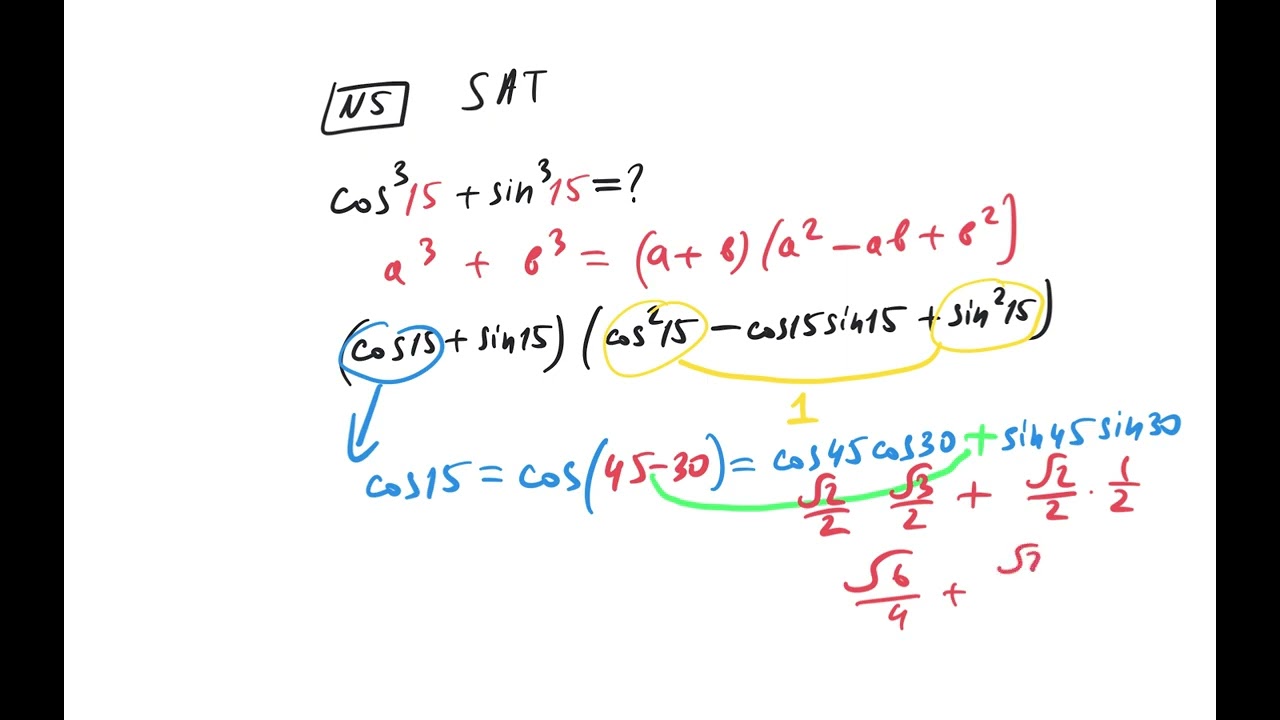 N5 SAT
cos³15 + sin³15 = ?
a³ + b³ = (a + b) (a² − ab + b²)
(cos15 + sin15) (cos²15 − cos15 sin15 + sin²15)
1
cos15 = cos(45−30) = cos45 cos30 + sin45 sin30
√2/2 √3/2 + √2/2 · 1/2
√6/4 + √2